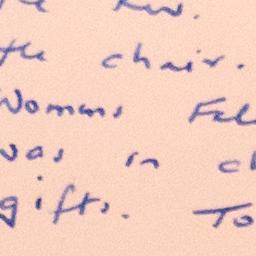 Rev.
the chair.
Womens
was in
gifts. To